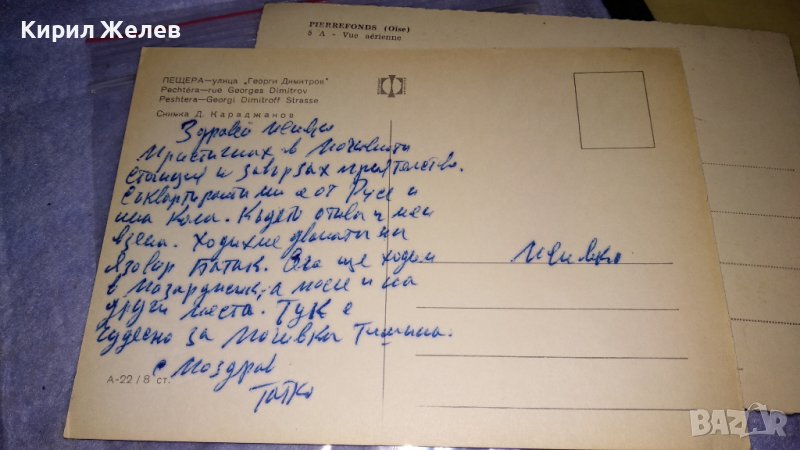 Кирил Желев
PIERREFONDS (Oise)
6 A - Vue aérienne
ПЕЩЕРА—улица „Георги Димитров"
Pechtéra—rue Georges Dimitrov
Peshtera—Georgi Dimitroff Strasse
Снимка Д. Караджанов
Здравей
Пристигнах в Почивната
станция и завързах приятелство.
Съквартирантът ми е от Русе и
има Кола. Където отива и мен
взема. Ходихме двамата на
язовир Батак. Сега ще ходим
в Пазарджик, а после и на
други места. Тук е
чудесно за Почивка Тишина.
с Поздрав
Татко
А-22 / 8 ст.
BAZAR
bg